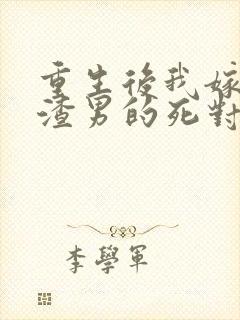 重生後我嫁
渣男的死對
李學軍